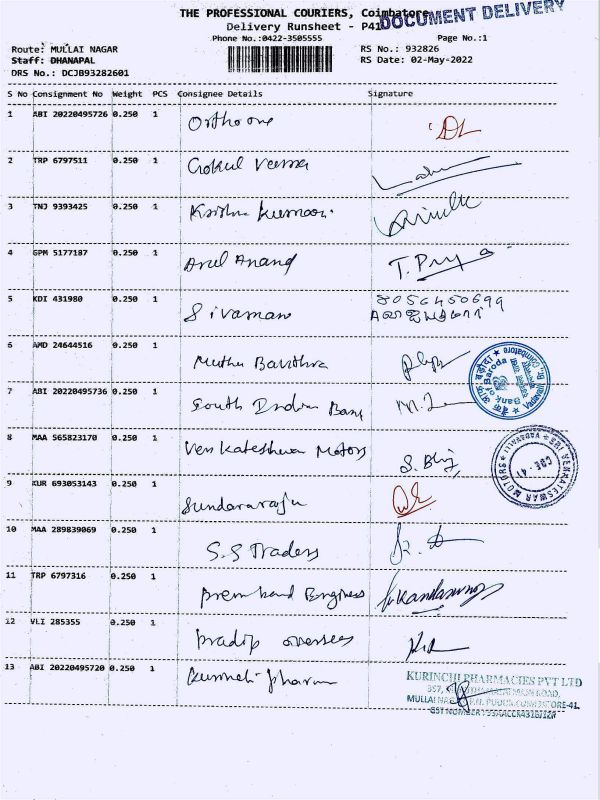 THE PROFESSIONAL COURIERS, Coimbatore
DOCUMENT DELIVERY
Delivery Runsheet - P41
Phone No.:0422-3505555 Page No.:1
Route: MULLAI NAGAR RS No.: 932826
Staff: DHANAPAL RS Date: 02-May-2022
DRS No.: DCJB93282601
S No Consignment No Weight PCS Consignee Details Signature
1 ABI 20220495726 0.250 1 Ortho one
2 TRP 6797511 0.250 1 Gokul Verma
3 TNJ 9393425 0.250 1 Krishna Kumar
4 GPM 5177187 0.250 1 Arul Anand T. Priya
5 KDI 431980 0.250 1 Sivaman 8056450699
6 AMD 24644516 0.250 1 Muthu
Bank of Baroda
7 ABI 20220495736 0.250 1 South Indian Bank
8 MAA 565823170 0.250 1 Venkateshwa Motors
SRI VENKATESWAR MOTORS
CBE - 41
9 KUR 693053143 0.250 1 Sundararaju
10 MAA 289839069 0.250 1 S.S Traders
11 TRP 6797316 0.250 1 Premhand Engineers
12 VLI 285355 0.250 1 Pradip overseas
13 ABI 20220495720 0.250 1
KURINCHI PHARMACIES PVT LTD